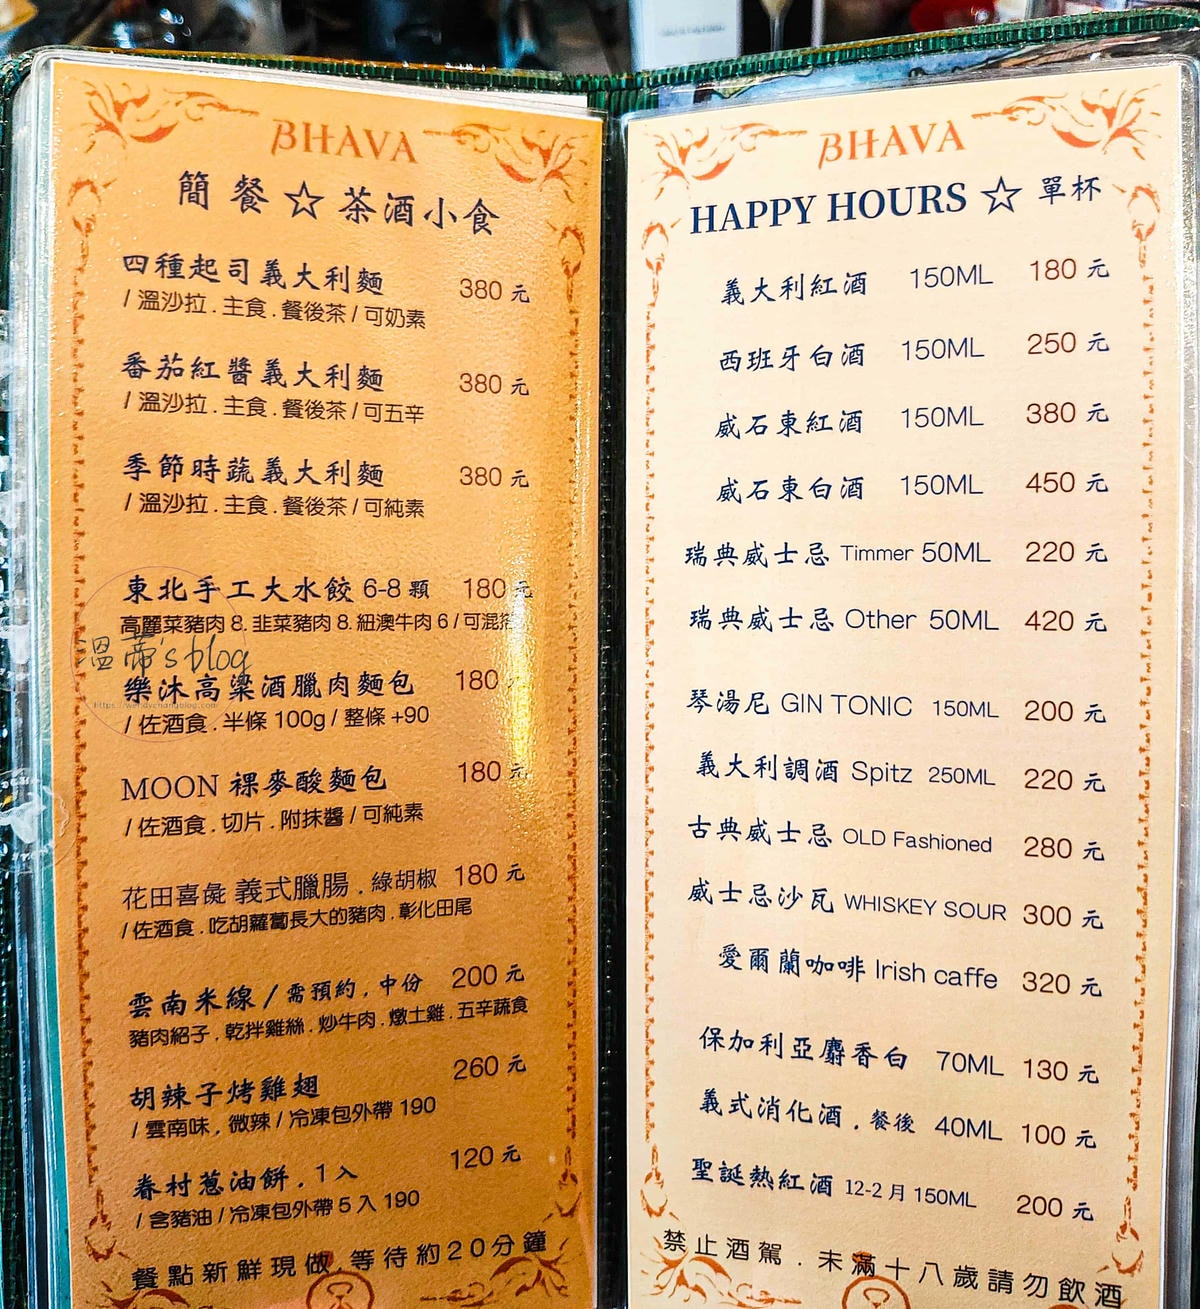 BHAVA
簡餐☆茶酒小食
四種起司義大利麵 380 元
/ 溫沙拉 . 主食 . 餐後茶 / 可奶素
番茄紅醬義大利麵 380 元
/ 溫沙拉 . 主食 . 餐後茶 / 可五辛
季節時蔬義大利麵 380 元
/ 溫沙拉 . 主食 . 餐後茶 / 可純素
東北手工大水餃 6-8 顆 180 元
高麗菜豬肉 8. 韭菜豬肉 8. 紐澳牛肉 6 / 可混
溫蒂's blog
https://wendychangblog.com/
樂沐高粱酒臘肉麵包 180
/ 佐酒食 . 半條 100g / 整條 +90
MOON 裸麥酸麵包 180 元
/ 佐酒食 . 切片 . 附抹醬 / 可純素
花田喜彘 義式臘腸 . 綠胡椒 180 元
/ 佐酒食 . 吃胡蘿蔔長大的豬肉 . 彰化田尾
雲南米線 / 需預約 . 中份 200 元
豬肉紹子 . 乾拌雞絲 . 炒牛肉 . 燉土雞 . 五辛蔬食
胡辣子烤雞翅 260 元
/ 雲南味 . 微辣 / 冷凍包外帶 190
眷村蔥油餅 . 1 入 120 元
/ 含豬油 / 冷凍包外帶 5 入 190
餐點新鮮現做 . 等待約20分鐘
BHAVA
HAPPY HOURS ☆ 單杯
義大利紅酒 150ML 180 元
西班牙白酒 150ML 250 元
威石東紅酒 150ML 380 元
威石東白酒 150ML 450 元
瑞典威士忌 Timmer 50ML 220 元
瑞典威士忌 Other 50ML 420 元
琴湯尼 GIN TONIC 150ML 200 元
義大利調酒 Spitz 250ML 220 元
古典威士忌 OLD Fashioned 280 元
威士忌沙瓦 WHISKEY SOUR 300 元
愛爾蘭咖啡 Irish caffe 320 元
保加利亞麝香白 70ML 130 元
義式消化酒 . 餐後 40ML 100 元
聖誕熱紅酒 12-2 月 150ML 200 元
禁止酒駕 . 未滿十八歲請勿飲酒